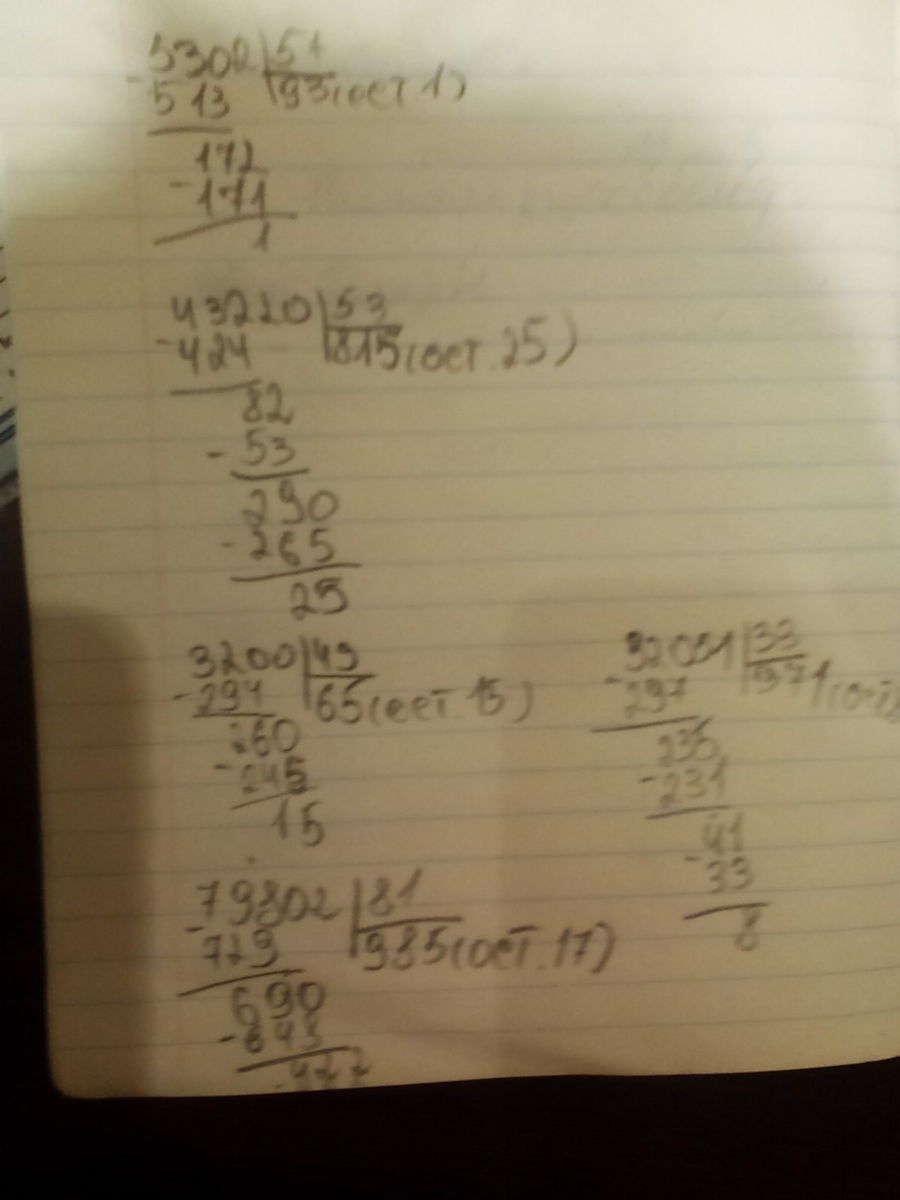 5302 | 57
- 513 | 93 (ост. 1)
172
- 171
1
43220 | 53
- 424 | 815 (ост. 25)
82
- 53
290
- 265
25
3200 | 49
- 294 | 65 (ост. 15)
260
- 245
15
32051 | 33
- 297 | 971 (ост
235
- 231
41
- 33
8
79802 | 81
- 729 | 985 (ост. 17)
690
- 648